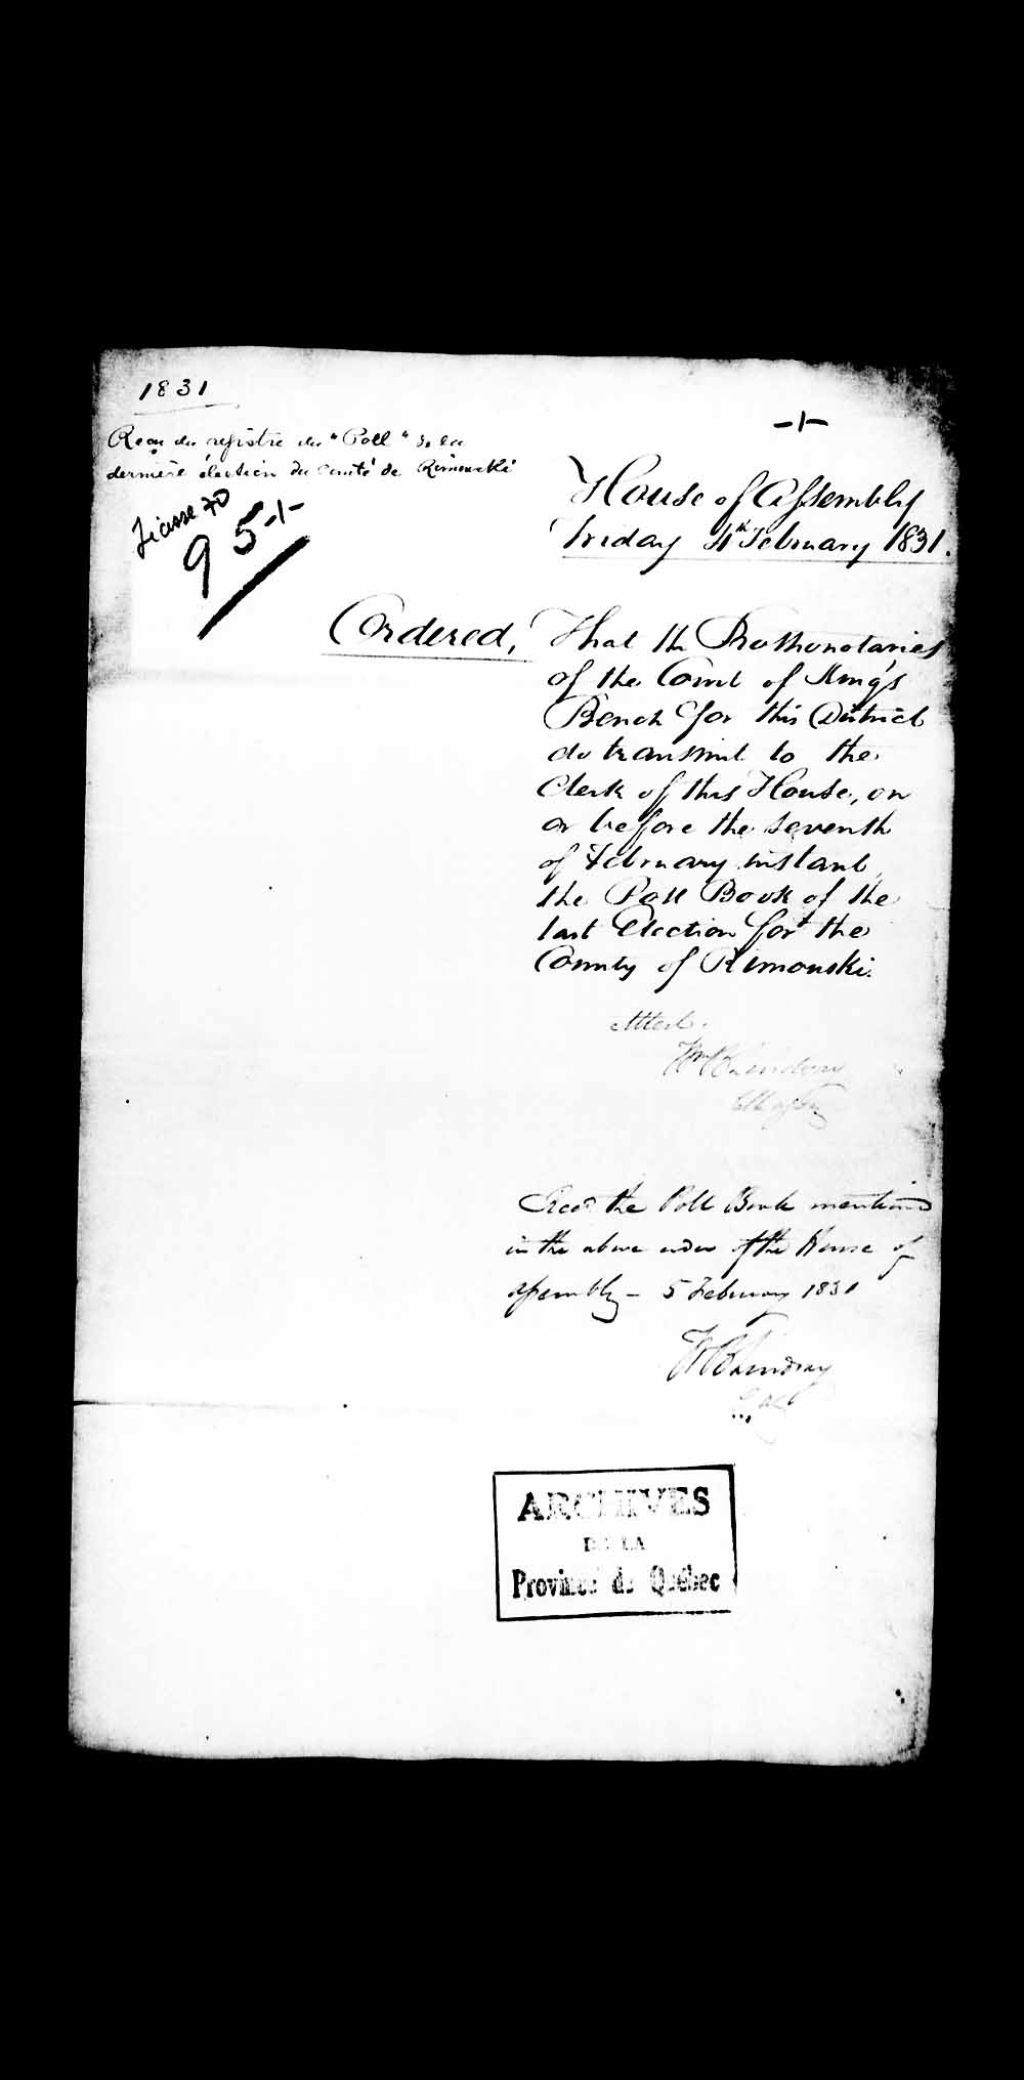 1831
Reçu du registre du "Poll" de la
dernière élection du Comté de Rimouski
Liasse 70
95-1-
-1-
House of Assembly
Friday 4th February 1831.
Ordered, That the Prothonotaries
of the Court of King's
Bench for this District
do transmit to the
Clerk of this House, on
or before the seventh
of February instant,
the Poll Book of the
last Election for the
County of Rimouski.
Attest.
Wm B Lindsay
Clk Assy
Recd the Poll Book mentioned
in the above order of the House of
Assembly - 5 February 1831
WB Lindsay
ARCHIVES
DE LA
Province de Québec